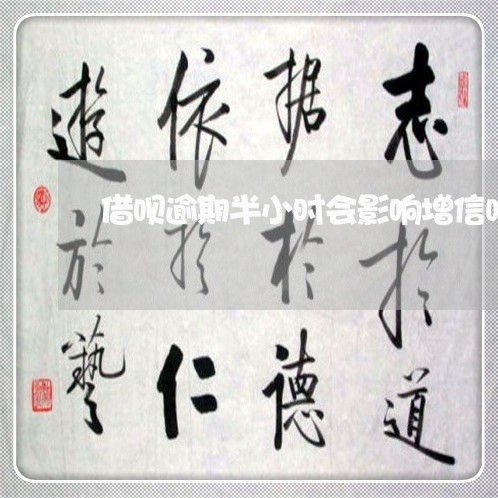 志扵道
据扵德
依扵仁
遊於藝
借呗逾期半小时会影响增信